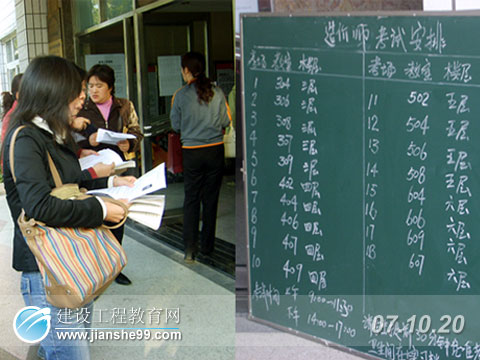 造价师考试安排
考场 教室 楼层 考场 教室 楼层
1 304 三层 11 502 五层
2 306 三层 12 504 五层
3 308 三层 13 506 五层
4 307 三层 14 508 五层
5 309 三层 15 604 六层
6 402 四层 16 606 六层
7 404 四层 17 609 六层
8 406 四层 18 607 六层
9 407 四层
10 409 四层
考试时间 上午 9:00—11:30
下午 14:00—17:00
建设工程教育网
www.jianshe99.com
07.10.20